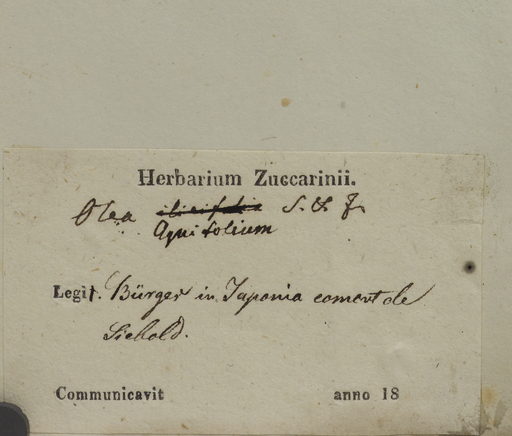 Herbarium Zuccarinii.
Olea ilicifolia S. & Z.
Aquifolium
Legit. Bürger in Japonia coment de
Siebold.
Communicavit anno 18